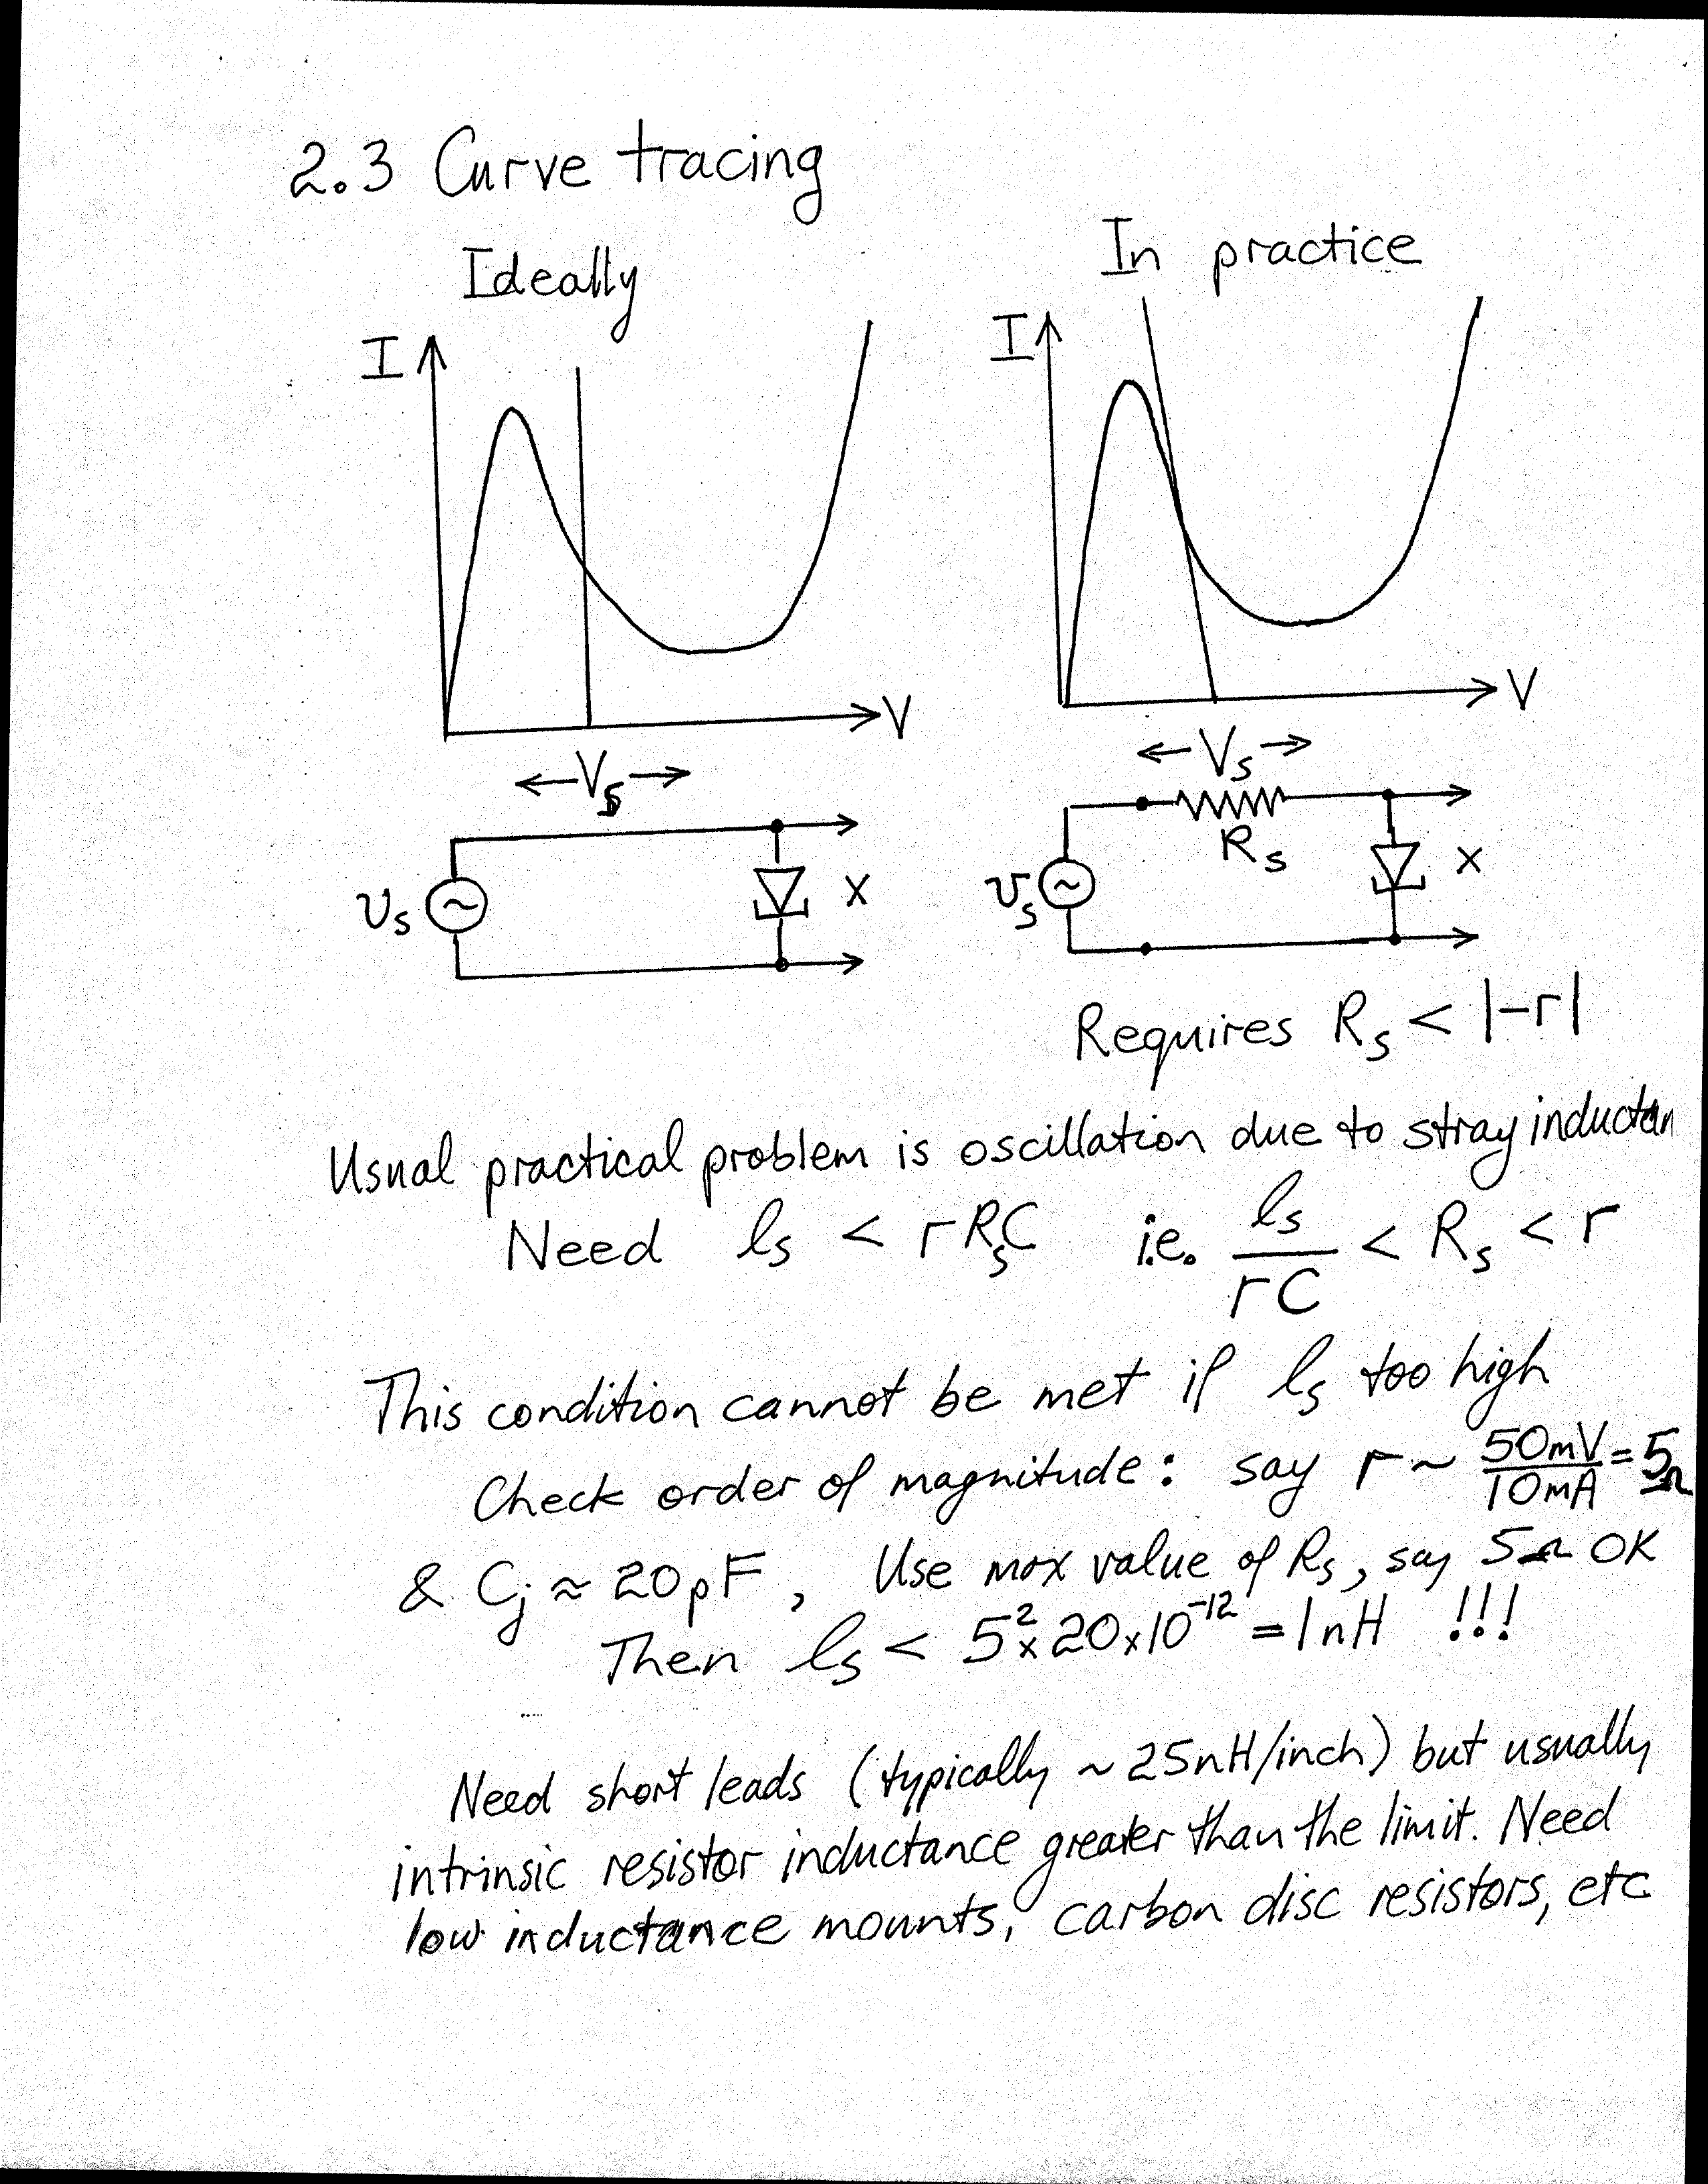 2.3 Curve tracing
Ideally
In practice
I
V
←Vs→
vs
~
X
I
V
←Vs→
Rs
vs
~
X
Requires Rs < |-r|
Usual practical problem is oscillation due to stray inductan
Need ls < rRsC i.e. ls/rC < Rs < r
This condition cannot be met if ls too high
Check order of magnitude: say r ~ 50mV/10mA = 5Ω
& Cj ≈ 20pF, Use max value of Rs, say 5Ω OK
Then ls < 5² x 20x10⁻¹² = 1nH !!!
Need short leads (typically ~ 25nH/inch) but usually
intrinsic resistor inductance greater than the limit. Need
low inductance mounts, carbon disc resistors, etc